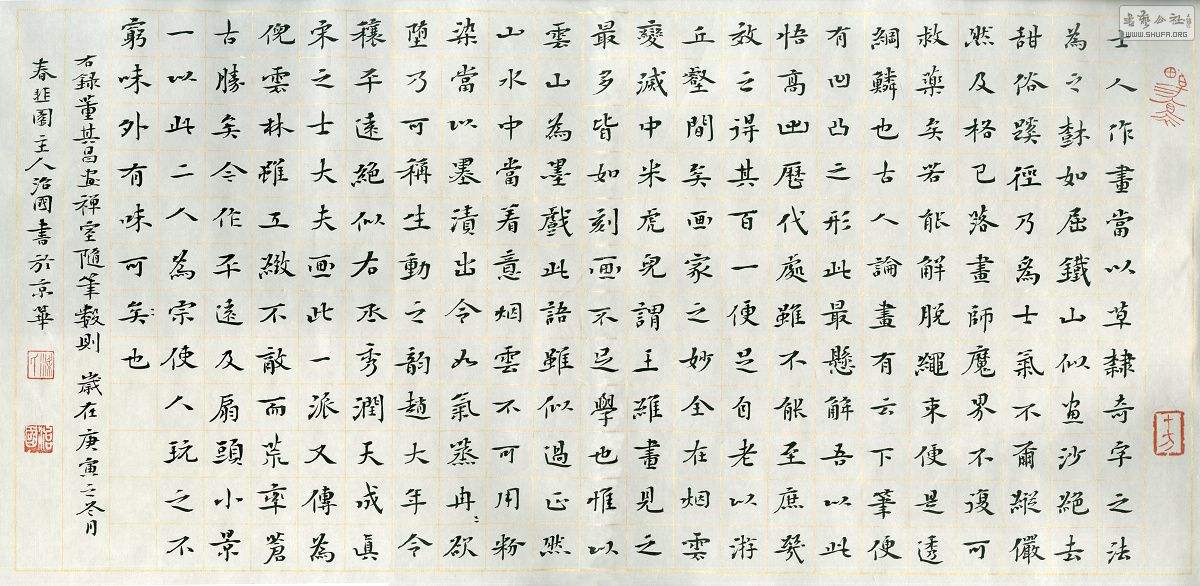 士人作畫當以草隸奇字之法
為之樹如屈鐵山似畫沙絕去
甜俗蹊徑乃為士氣不爾縱儼
然及格已落畫師魔界不復可
救藥矣若能解脫繩束便是透
網鱗也古人論畫有云下筆便
有凹凸之形此最懸解吾以此
悟高出歷代處雖不能至庶幾
效之得其百一便足自老以游
丘壑間矣画家之妙全在烟雲
變滅中米虎兒謂王維畫見之
最多皆如刻画不足學也惟以
雲山為墨戲此語雖似過正然
山水中當着意烟雲不可用粉
染當以墨漬出令如氣蒸冉〻欲
墮乃可稱生動之韵趙大年令
穰平遠絕似右丞秀潤天成真
宋之士大夫画此一派又傳為
倪雲林雖工緻不敵而荒率蒼
古勝矣今作平遠及扇頭小景
一以此二人為宗使人玩之不
窮味外有味可矣也
右錄董其昌畫禪室隨筆數則 歲在庚寅之冬月
春韭園主人治國書於京華
書藝公社
WWW.SHUFA.ORG